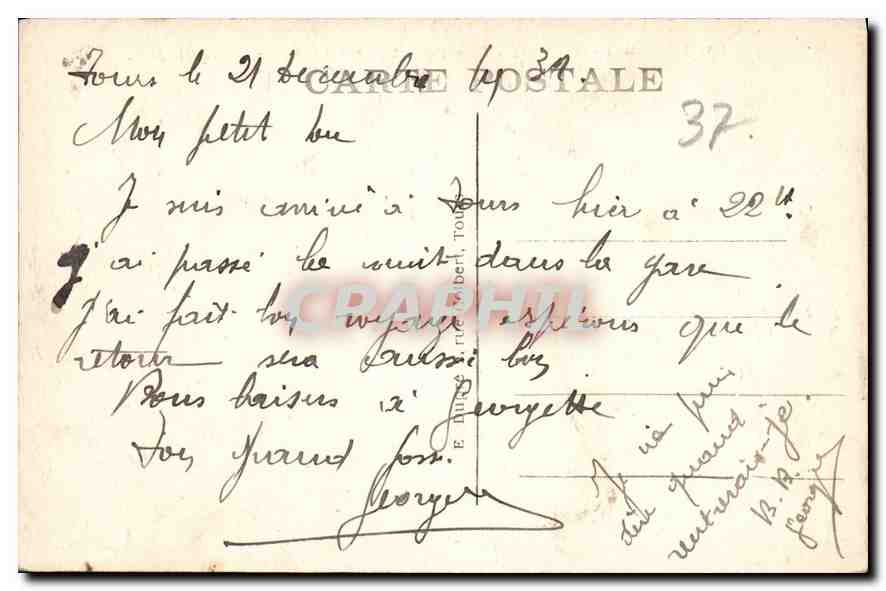 CARTE POSTALE
Tours le 21 Decembre 39.
37
Mon petit lou
Je suis arrivé à Tours hier à 22h.
J'ai passé la nuit dans la gare
J'ai fait bon voyage espérons que le
retour sera aussi bon
Bons baisers à Georgette
Ton Grand Goss.
Georges
Je ne puis
dire quand
rentrerais-je.
B. B.
Georges
E. Dupré, rue Colbert, Tours
CPAPHIL